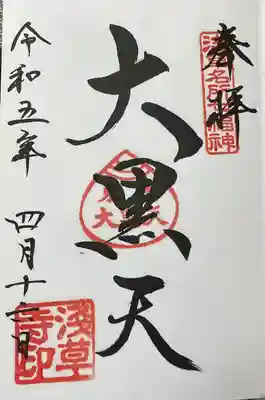 奉拝
浅草名所七福神
大黒天
令和五年 四月十六日
浅草寺印